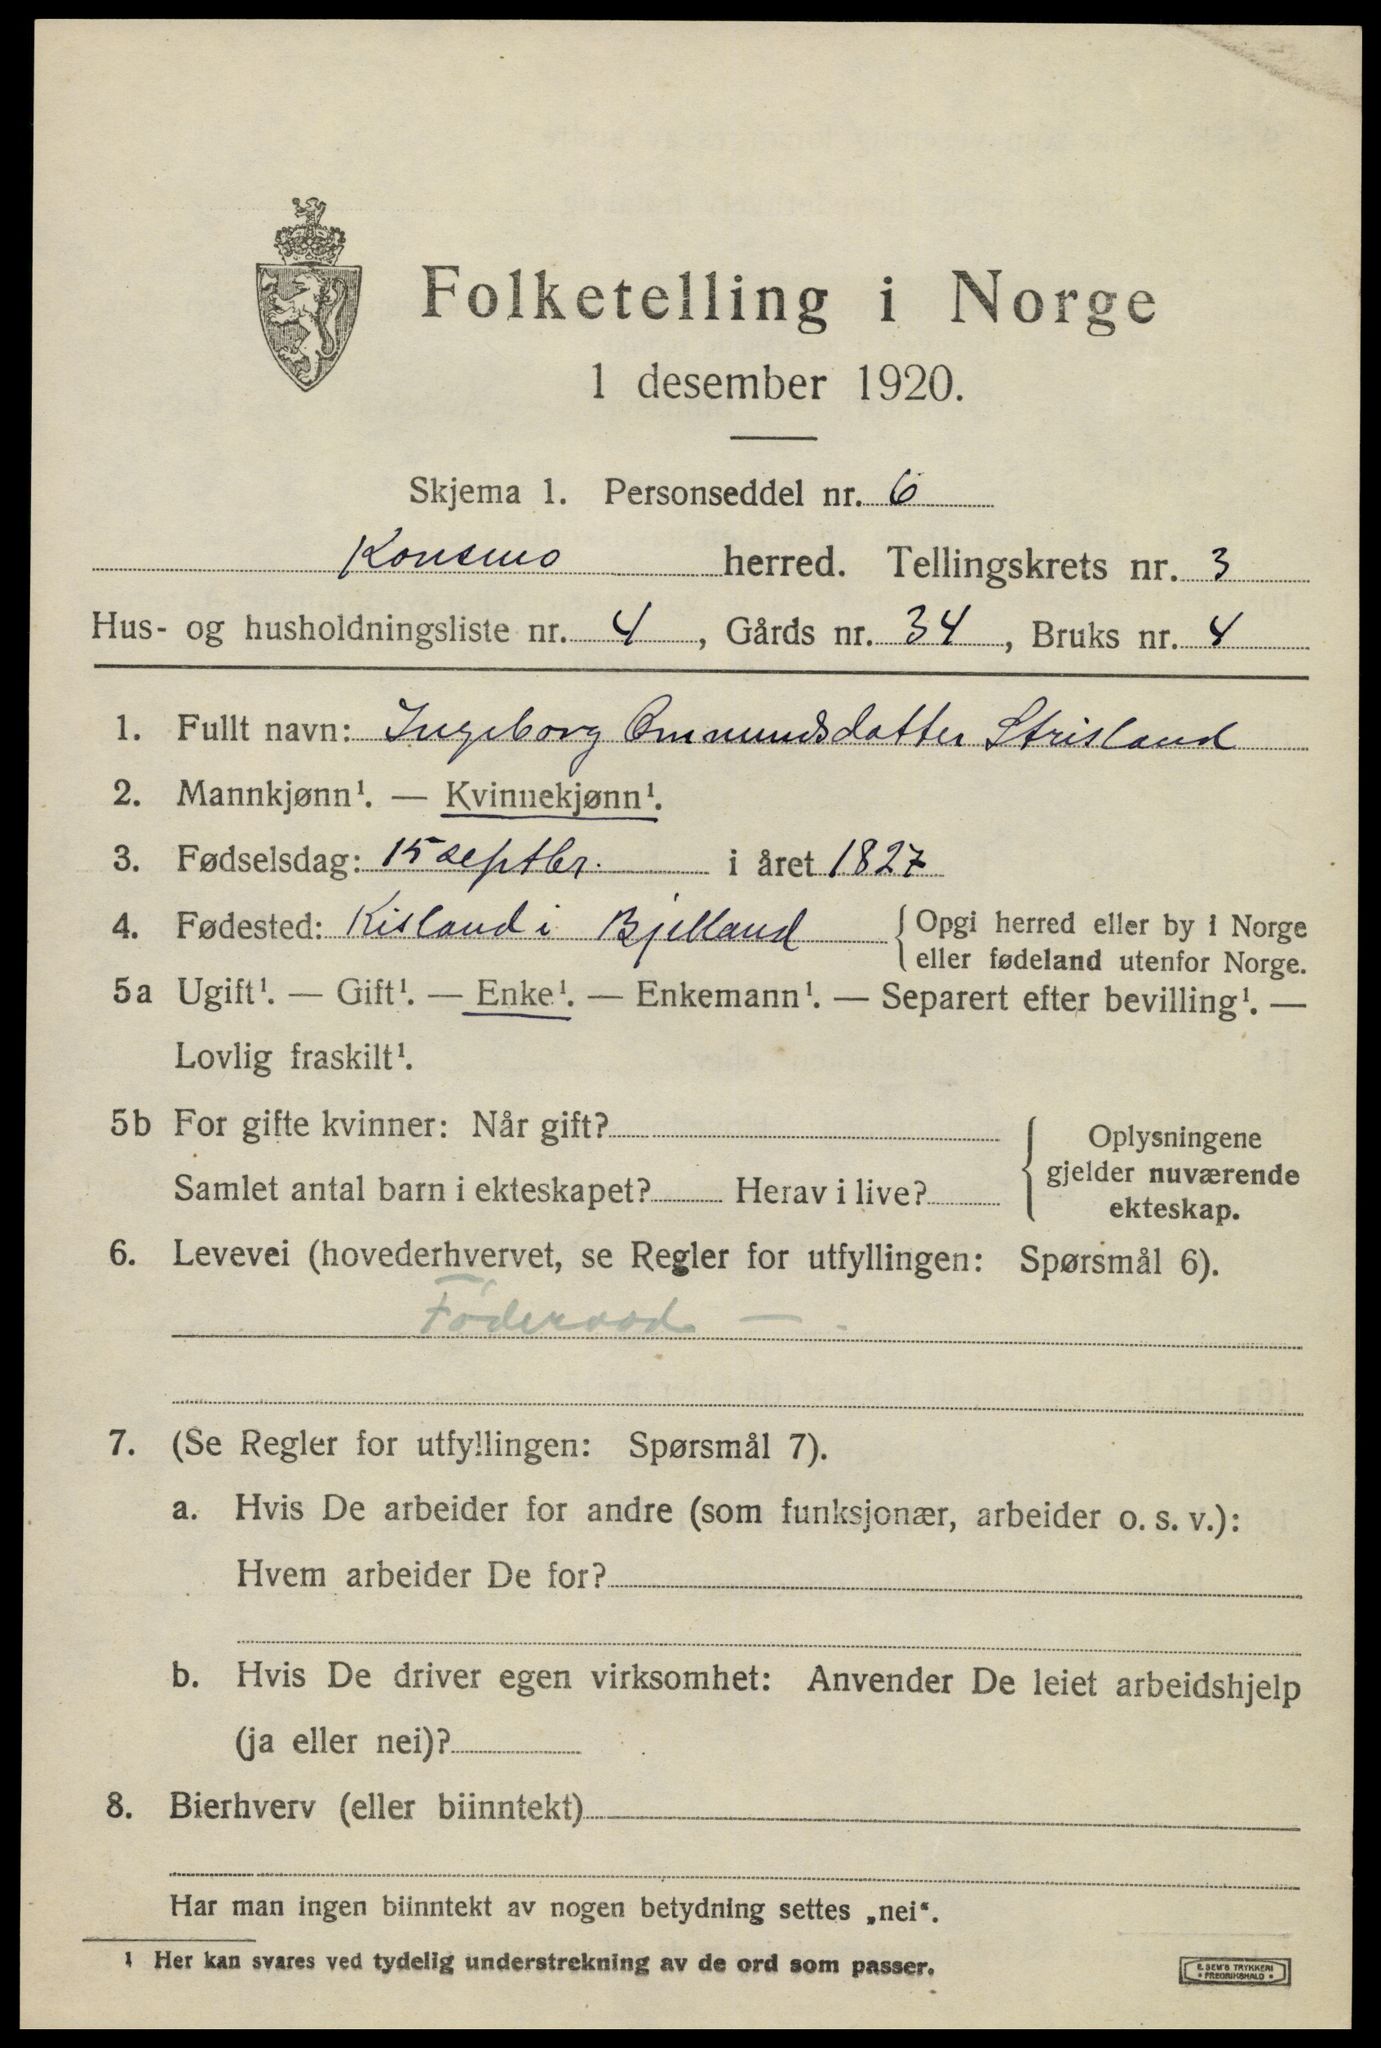 Folketelling i Norge
1 desember 1920.
Skjema 1. Personseddel nr. 6
Konsmo herred. Tellingskrets nr. 3
Hus- og husholdningsliste nr. 4, Gårds nr. 34, Bruks nr. 4
1. Fullt navn: Ingeborg Ommundsdatter Strisland
2. Mannkjønn¹. — Kvinnekjønn¹.
3. Fødselsdag: 15 septbr. i året 1827
4. Fødested: Kisland i Bjelland { Opgi herred eller by i Norge
eller fødeland utenfor Norge.
5a Ugift¹. — Gift¹. — Enke¹. — Enkemann¹. — Separert efter bevilling¹. —
Lovlig fraskilt¹.
5b For gifte kvinner: Når gift?
Samlet antal barn i ekteskapet? Herav i live?
{ Oplysningene
gjelder nuværende
ekteskap.
6. Levevei (hovederhvervet, se Regler for utfyllingen: Spørsmål 6).
Föderaad —
7. (Se Regler for utfyllingen: Spørsmål 7).
a. Hvis De arbeider for andre (som funksjonær, arbeider o. s. v.):
Hvem arbeider De for?
b. Hvis De driver egen virksomhet: Anvender De leiet arbeidshjelp
(ja eller nei)?
8. Bierhverv (eller biinntekt)
Har man ingen biinntekt av nogen betydning settes „nei“.
1 Her kan svares ved tydelig understrekning av de ord som passer.
E. SEM'S TRYKKERI
• FREDRIKSHALD •